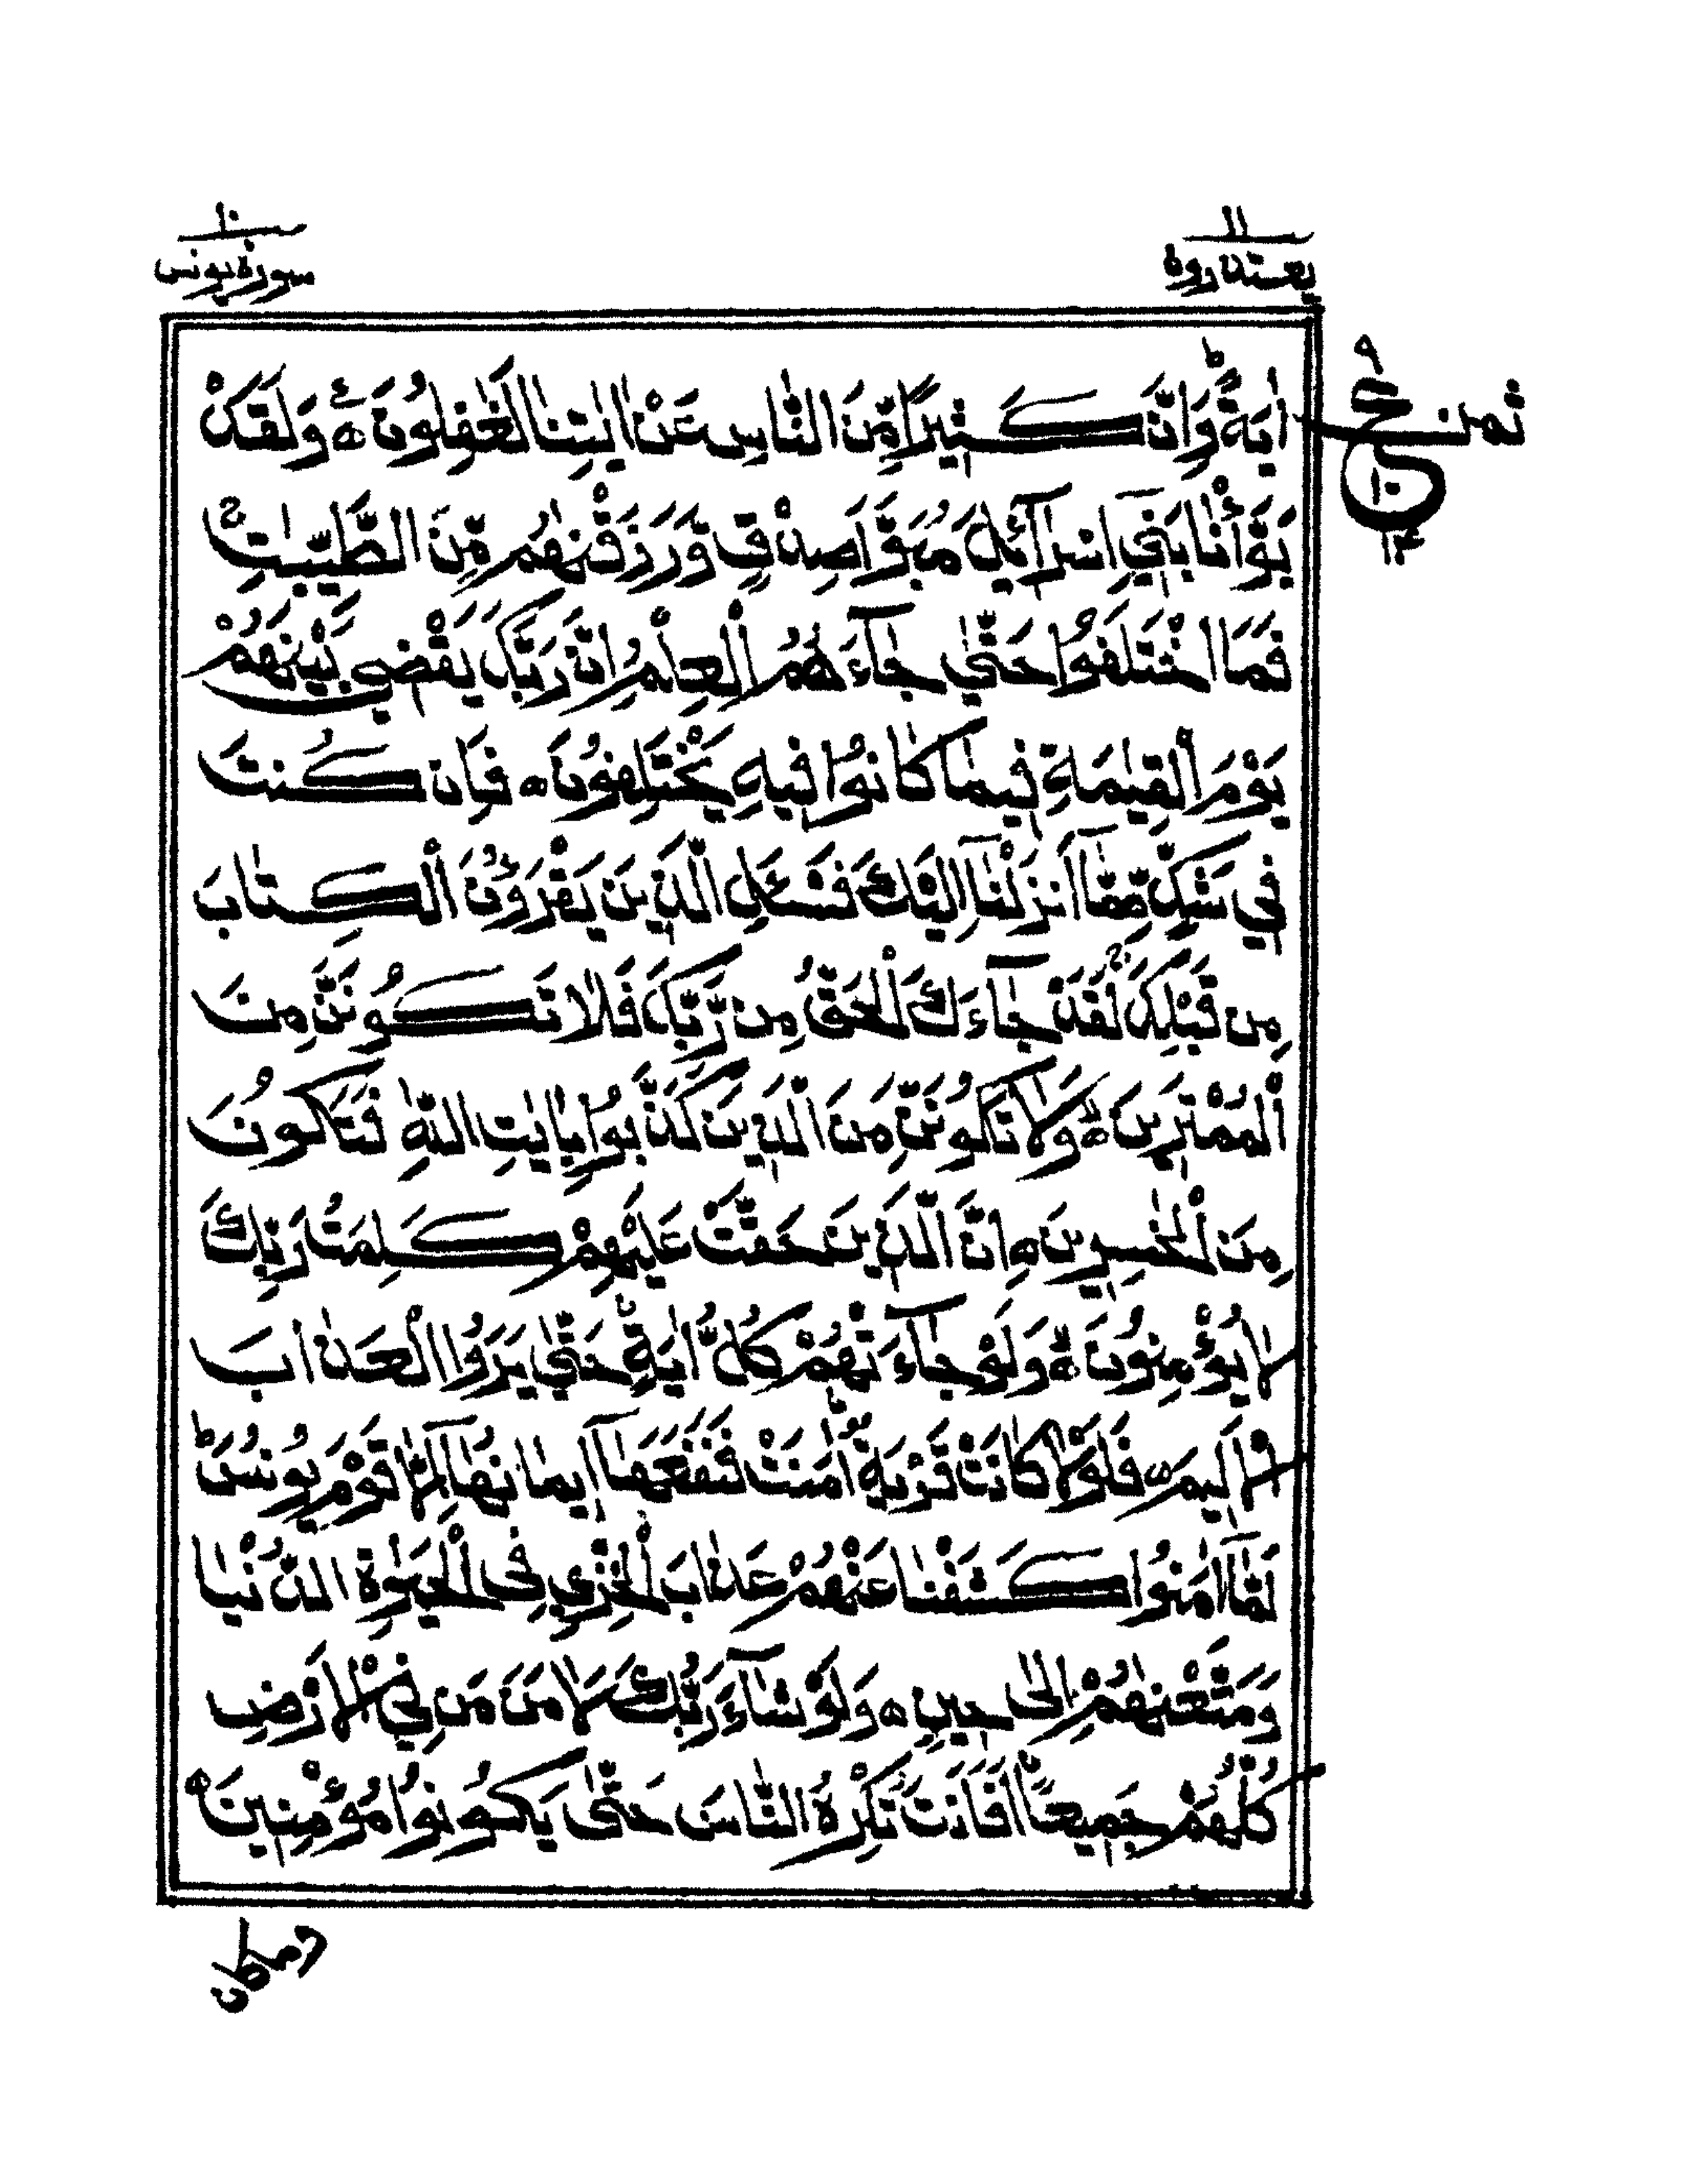 ١١
يعتذرون
١٠
سورة يونس
ثمن
ع
٩
١٠
١٤
اٰيَةً وَاِنَّ كَثِيْرًا مِّنَ النَّاسِ عَنْ اٰيٰتِنَا لَغٰفِلُوْنَ ۝ وَلَقَدْ
بَوَّأْنَا بَنِيْ اِسْرَآئِيْلَ مُبَوَّاَ صِدْقٍ وَّرَزَقْنٰهُمْ مِّنَ الطَّيِّبٰتِ ج
فَمَا اخْتَلَفُوْا حَتّٰى جَآءَهُمُ الْعِلْمُ اِنَّ رَبَّكَ يَقْضِيْ بَيْنَهُمْ
يَوْمَ الْقِيٰمَةِ فِيْمَا كَانُوْا فِيْهِ يَخْتَلِفُوْنَ ۝ فَاِن كُنتَ
فِيْ شَكٍّ مِّمَّآ اَنزَلْنَآ اِلَيْكَ فَسْـَٔلِ الَّذِيْنَ يَقْرَءُوْنَ الْكِتٰبَ
مِن قَبْلِكَ ج لَقَدْ جَآءَكَ الْحَقُّ مِن رَّبِّكَ فَلَا تَكُوْنَنَّ مِنَ
الْمُمْتَرِيْنَ ۝ وَلَا تَكُوْنَنَّ مِنَ الَّذِيْنَ كَذَّبُوْا بِاٰيٰتِ اللّٰهِ فَتَكُوْنَ
مِنَ الْخٰسِرِيْنَ ۝ اِنَّ الَّذِيْنَ حَقَّتْ عَلَيْهِمْ كَلِمَتُ رَبِّكَ
لَا يُؤْمِنُوْنَ ۝ وَلَوْ جَآءَتْهُمْ كُلُّ اٰيَةٍ حَتّٰى يَرَوُا الْعَذَابَ
الْاَلِيْمَ ۝ فَلَوْلَا كَانَتْ قَرْيَةٌ اٰمَنَتْ فَنَفَعَهَآ اِيْمَانُهَآ اِلَّا قَوْمَ يُوْنُسَ ط
لَمَّآ اٰمَنُوْا كَشَفْنَا عَنْهُمْ عَذَابَ الْخِزْيِ فِى الْحَيٰوةِ الدُّنْيَا
وَمَتَّعْنٰهُمْ اِلٰى حِيْنٍ ۝ وَلَوْ شَآءَ رَبُّكَ لَاٰمَنَ مَن فِي الْاَرْضِ
كُلُّهُمْ جَمِيْعًا اَفَاَنتَ تُكْرِهُ النَّاسَ حَتّٰى يَكُوْنُوْا مُؤْمِنِيْنَ ۝
وما كان